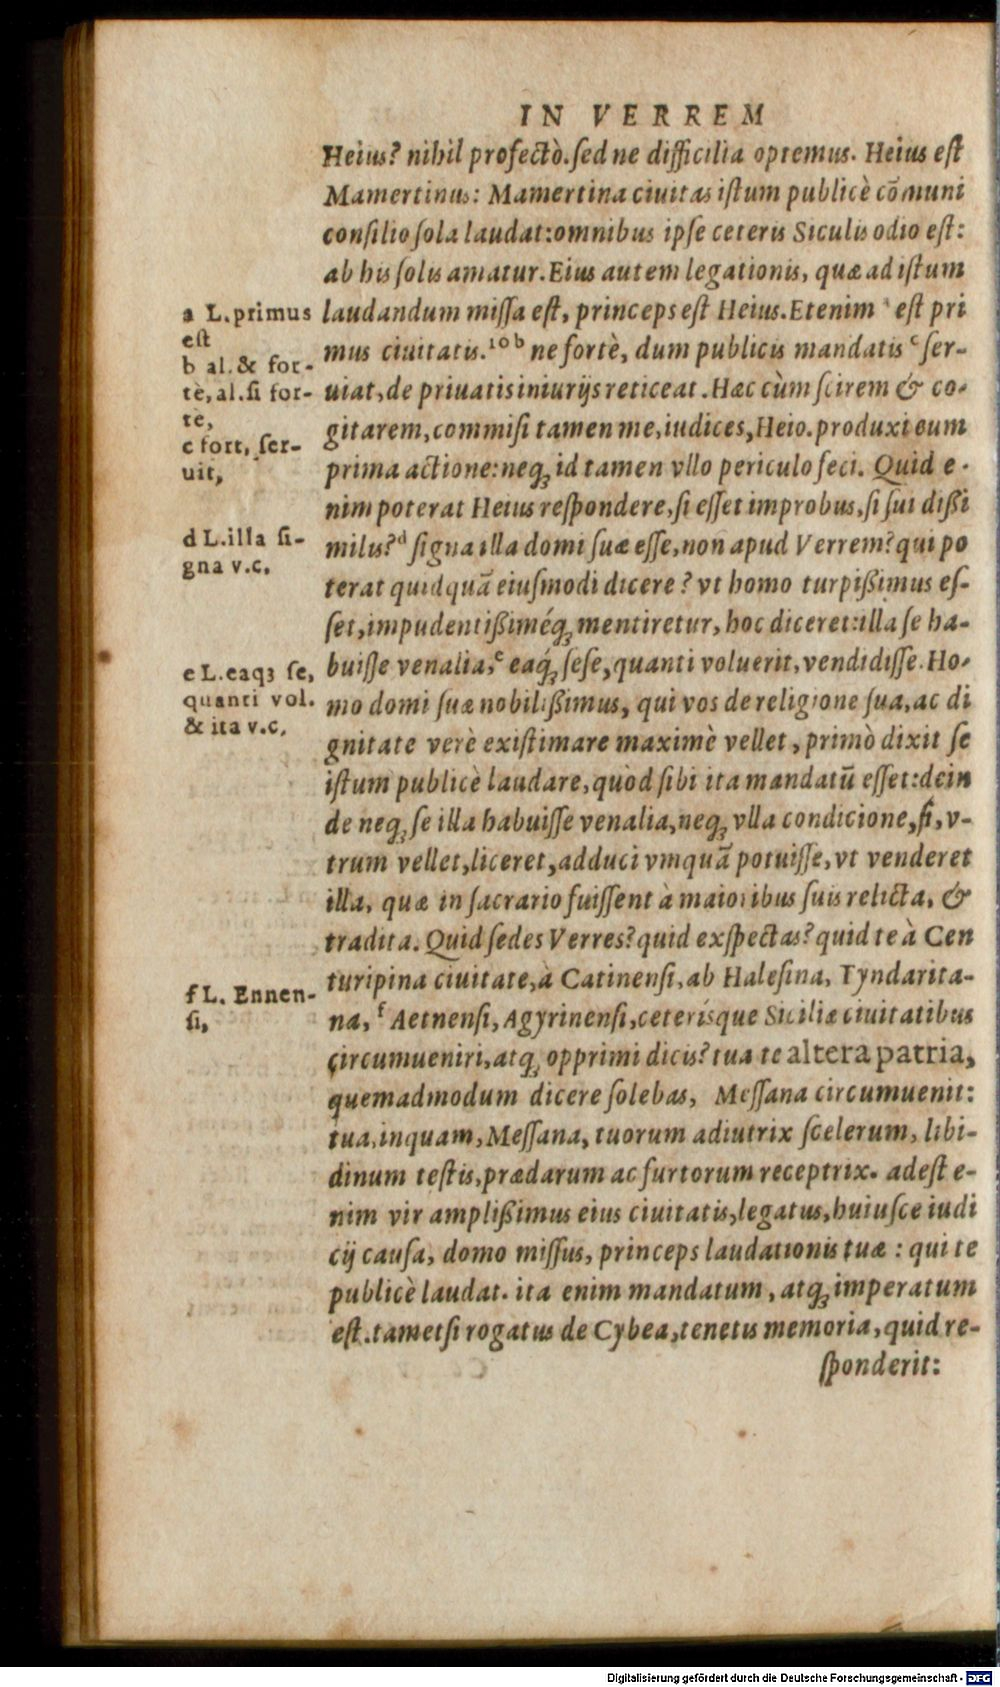 IN VERREM
Heius? nihil profectò. sed ne difficilia optemus. Heius est
Mamertinus: Mamertina ciuitas istum publicè cōmuni
consilio sola laudat: omnibus ipse ceteris Siculis odio est:
ab his solis amatur. Eius autem legationis, quæ ad istum
laudandum missa est, princeps est Heius. Etenim ᵃ est pri
mus ciuitatis. ¹⁰ ᵇ ne fortè, dum publicis mandatis ᶜ ser-
uiat, de priuatis iniurijs reticeat. Hæc cùm scirem & co-
gitarem, commisi tamen me, iudices, Heio. produxi eum
prima actione: neq; id tamen vllo periculo feci. Quid e-
nim poterat Heius respondere, si esset improbus, si sui dißi
milis? ᵈ signa illa domi suæ esse, non apud Verrem? qui po
terat quidquā eiusmodi dicere? vt homo turpißimus es-
set, impudentißiméq; mentiretur, hoc diceret: illa se ha-
buisse venalia, ᵉ eaq́; sese, quanti voluerit, vendidisse. Ho-
mo domi suæ nobilißimus, qui vos de religione sua, ac di
gnitate verè existimare maximè vellet, primò dixit se
istum publicè laudare, quòd sibi ita mandatū esset: dein
de neq; se illa habuisse venalia, neq; vlla condicione, si, v-
trum vellet, liceret, adduci vmquā potuisse, vt venderet
illa, quæ in sacrario fuissent à maioribus suis relicta, &
tradita. Quid sedes Verres? quid exspectas? quid te à Cen
turipina ciuitate, à Catinensi, ab Halesina, Tyndarita-
na, ᶠ Aetnensi, Agyrinensi, ceterísque Siciliæ ciuitatibus
circumueniri, atq; opprimi dicis? tua te altera patria,
quemadmodum dicere solebas, Messana circumuenit:
tua, inquam, Messana, tuorum adiutrix scelerum, libi-
dinum testis, prædarum ac furtorum receptrix. adest e-
nim vir amplißimus eius ciuitatis, legatus, huiusce iudi
cij causa, domo missus, princeps laudationis tuæ: qui te
publicè laudat. ita enim mandatum, atq; imperatum
est. tametsi rogatus de Cybea, tenetis memoria, quid re-
sponderit:
a L. primus
est
b al. & for-
tè, al. si for-
tè,
c fort, ser-
uit,
d L. illa si-
gna v.c.
e L. eaq; se,
quanti vol.
& ita v.c.
f L. Ennen-
si,
Digitalisierung gefördert durch die Deutsche Forschungsgemeinschaft - DFG